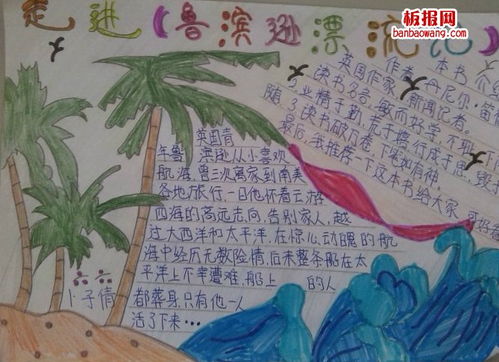 走进《鲁滨逊漂流记》
板报网
banbaowang.com
作者 丹尼尔·笛
本书
英国作家 新闻记者。
读书名言 敏而好学 不耻
业精于勤 荒于嬉 行成于思 毁
随 了读书破万卷 下笔如有神
最后 我推荐一下这本书给大家 可好看
英国青
年鲁 滨逊从小喜欢
航海,曾三次离家到南美
各地旅行,一日他怀着云游
四海的高远志向,告别家人,越
过大西洋和太平洋,在惊心动魄的航
海中经历无数险情,后来整条船在太
平洋上不幸遭难,船上 的人
都葬身,只有他一人
活了下来…
六六
卜子倩